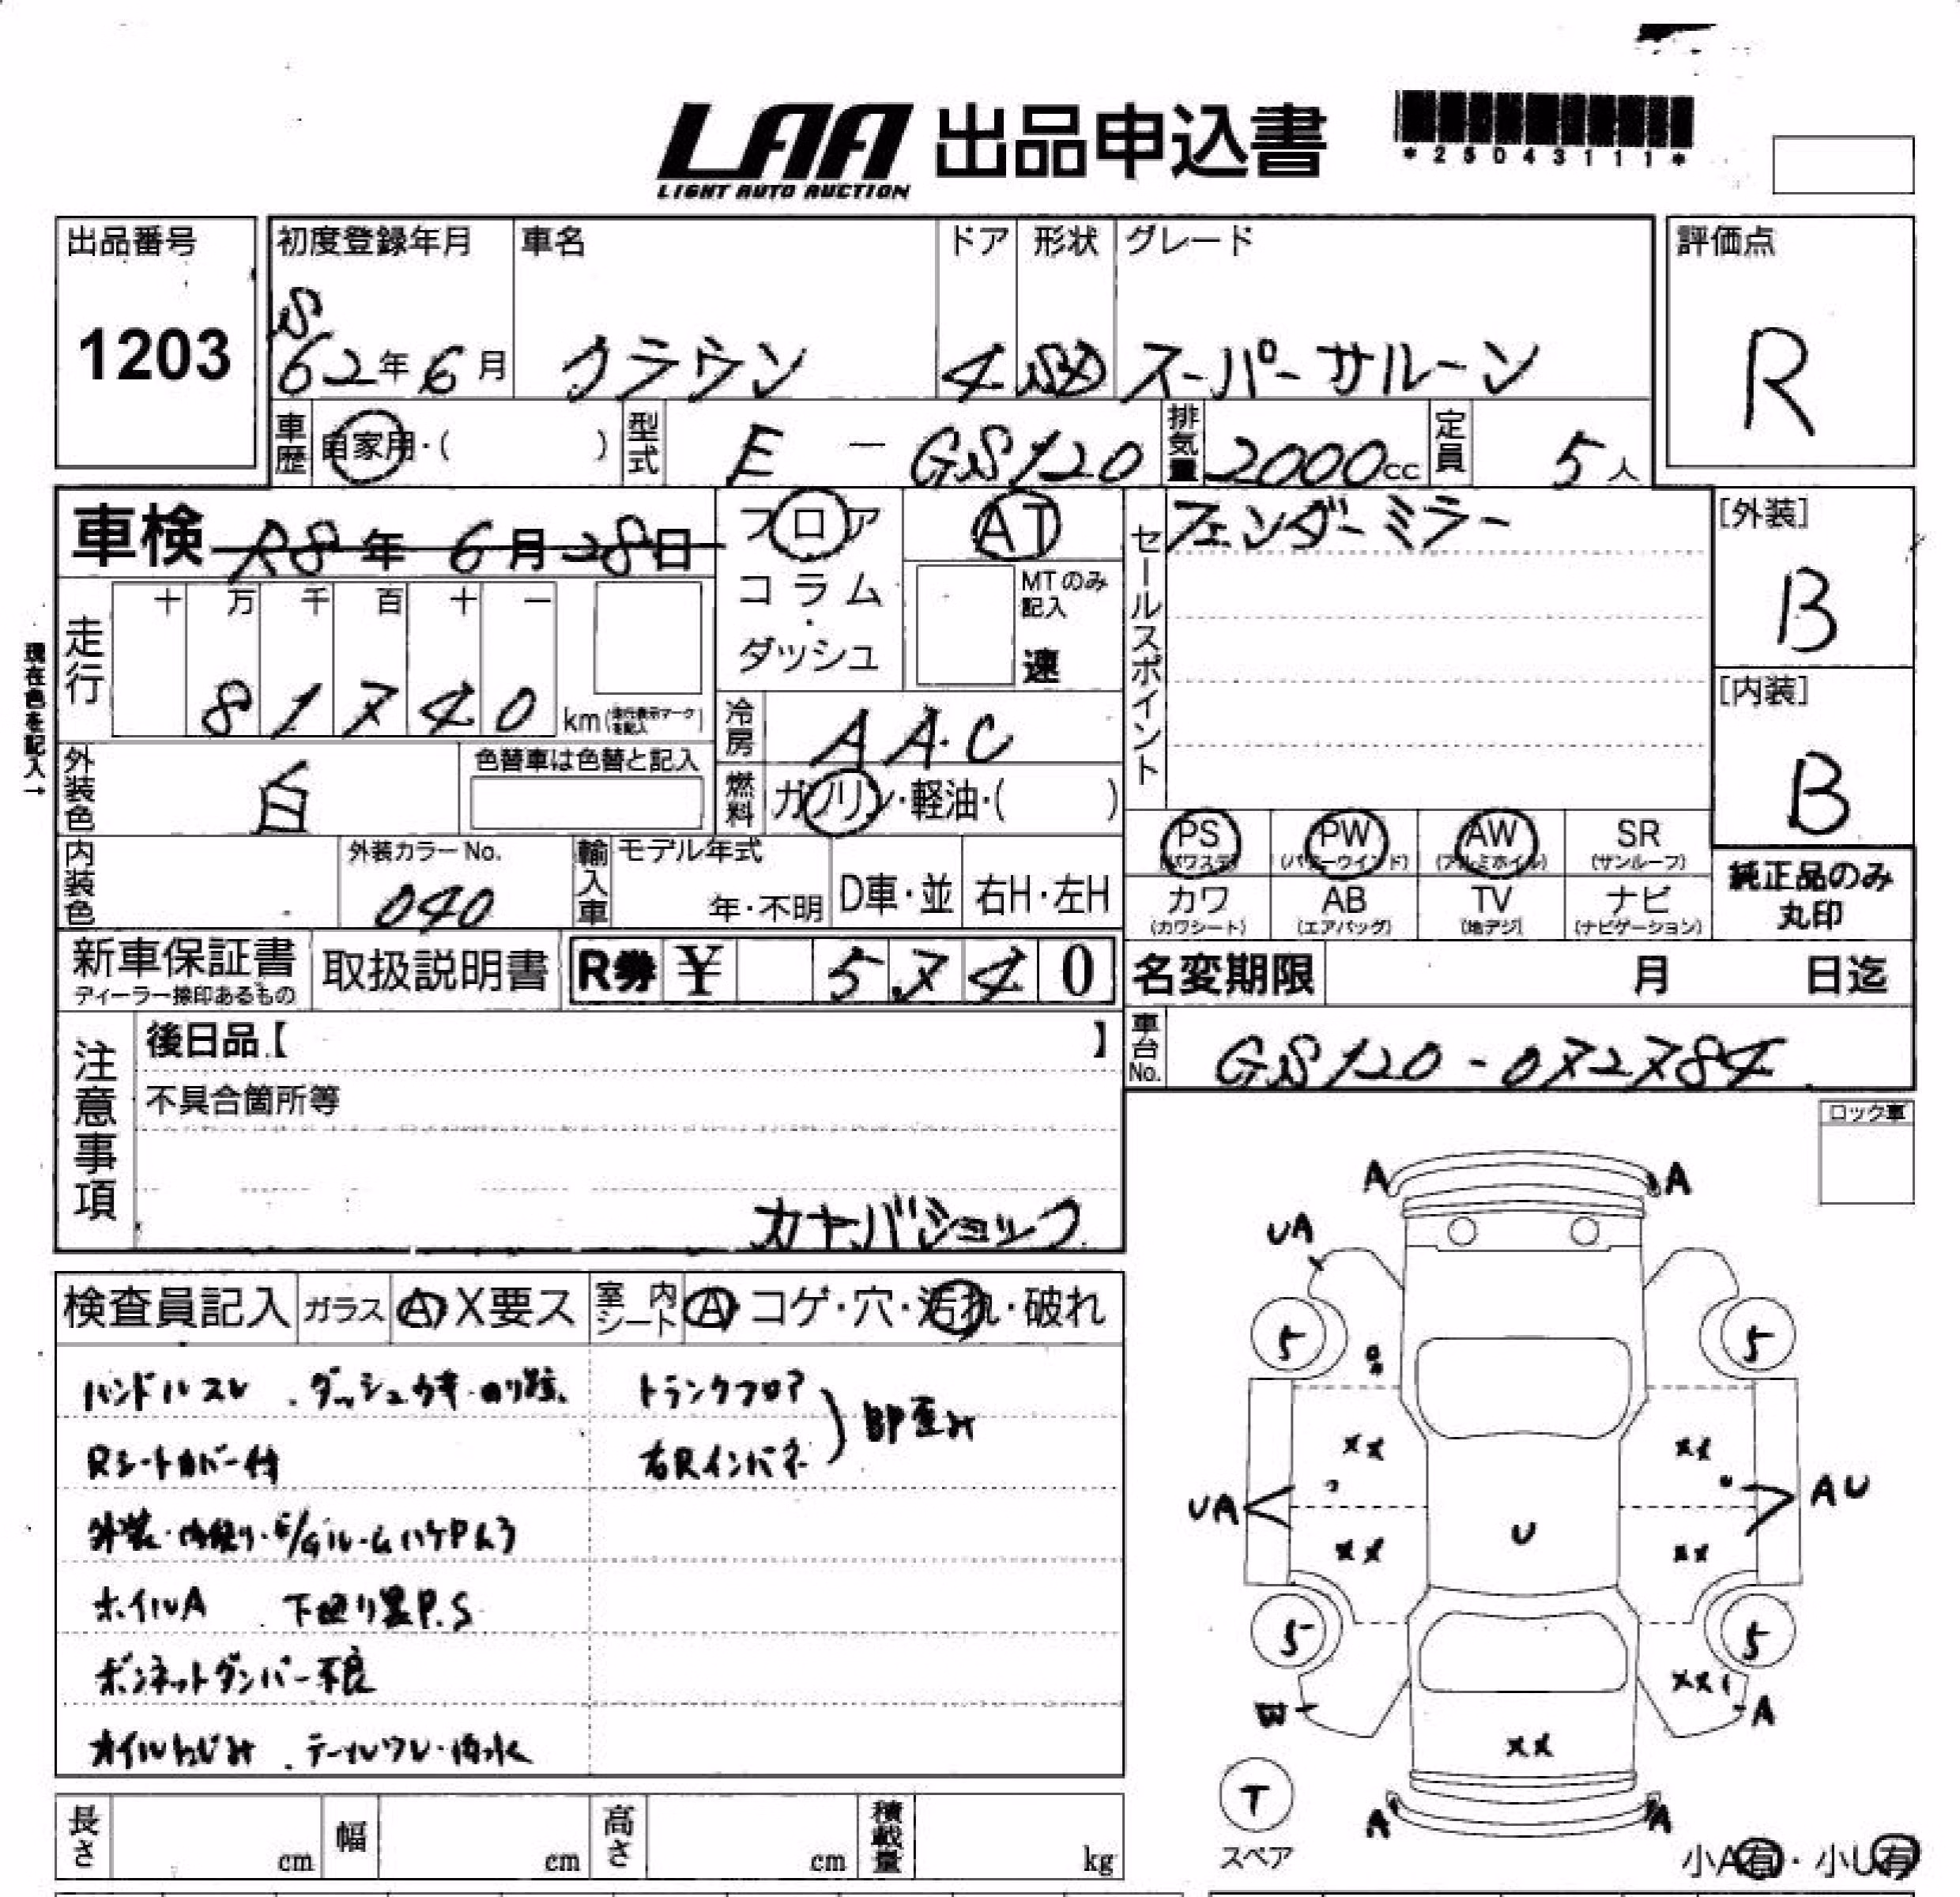 LAA 出品申込書
LIGHT AUTO AUCTION
*25043111*
出品番号
1203
初度登録年月 車名 ドア 形状 グレード
S
62年6月 クラウン 4 SD スーパーサルーン
評価点
R
車歴 自家用・( ) 型式 E - GS120 排気量 2000cc 定員 5人
車検 R8年 6月28日
フロア
コラム
・
ダッシュ
AT
MTのみ記入
速
セールスポイント
フェンダーミラー
[外装]
B
[内装]
B
現在色を記入→
走行 十 万 千 百 十 一
8 1 7 4 0 km (走行表示マークを記入)
冷房 AAC
燃料 ガソリン・軽油・( )
外装色 白 色替車は色替と記入
内装色 外装カラーNo.
040
輸入車 モデル年式
年・不明 D車・並 右H・左H
PS (パワステ) PW (パワーウインド) AW (アルミホイル) SR (サンルーフ)
カワ (カワシート) AB (エアバッグ) TV (地デジ) ナビ (ナビゲーション)
純正品のみ
丸印
新車保証書
ディーラー捺印あるもの
取扱説明書
R券 ¥ 5 7 4 0
名変期限 月 日迄
車台No. GS120-072784
注意事項
後日品【 】
不具合箇所等
カヤバショック
ロック車
検査員記入 ガラス A X要ス 室内シート A・コゲ・穴・汚れ・破れ
ハンドルスレ . ダッシュウキ・のり跡.
Rシートカバー付
外装・内張り・E/GルームハケPん3
ホイルA 下廻り黒P.S
ボンネットダンパー不良
オイルにじみ . テールワレ・内水
トランクフロア
右Rインパネ
BP歪み
A A
UA
5 5
XX XX
UA AU
XX U XX
5 5
XX
W A
XX
T
スペア
A A
小A有・小U有
長さ cm 幅 cm 高さ cm 積載量 kg